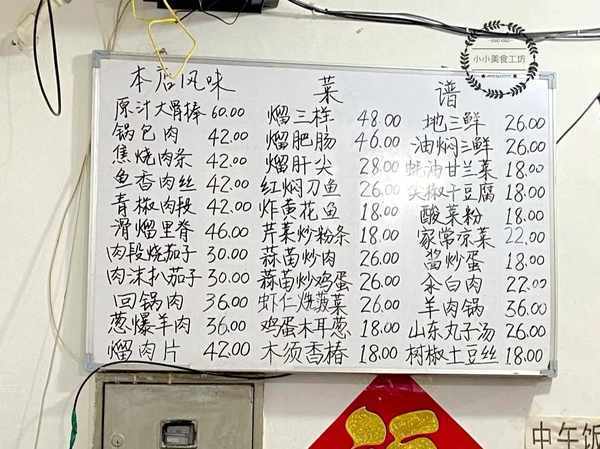 本店风味 菜 谱
原汁大骨棒 60.00 熘三样 48.00 地三鲜 26.00
锅包肉 42.00 熘肥肠 46.00 油焖三鲜 26.00
焦烧肉条 42.00 熘肝尖 28.00 蚝油甘兰菜 18.00
鱼香肉丝 42.00 红焖刀鱼 26.00 尖椒干豆腐 18.00
青椒肉段 42.00 炸黄花鱼 18.00 酸菜粉 18.00
滑熘里脊 46.00 芹菜炒粉条 18.00 家常凉菜 22.00
肉段烧茄子 30.00 蒜苗炒肉 26.00 酱炒蛋 18.00
肉沫扒茄子 30.00 蒜苗炒鸡蛋 26.00 汆白肉 22.00
回锅肉 36.00 虾仁烧菠菜 26.00 羊肉锅 36.00
葱爆羊肉 36.00 鸡蛋木耳葱 18.00 山东丸子汤 26.00
熘肉片 42.00 木须香椿 18.00 树椒土豆丝 18.00
小小美食工坊
中午饭